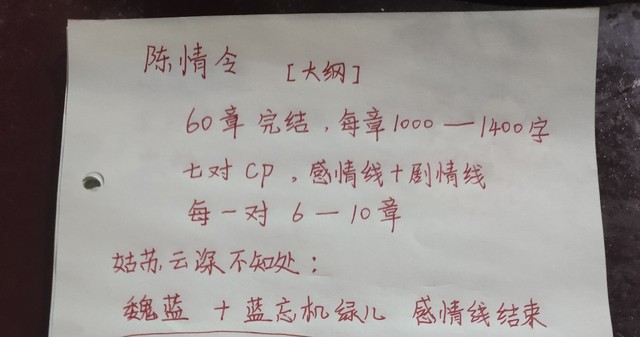 陈情令 [大纲]
60章完结，每章1000—1400字
七对CP，感情线+剧情线
每一对 6—10章
姑苏云深不知处：
魏蓝 + 蓝忘机绿儿 感情线结束